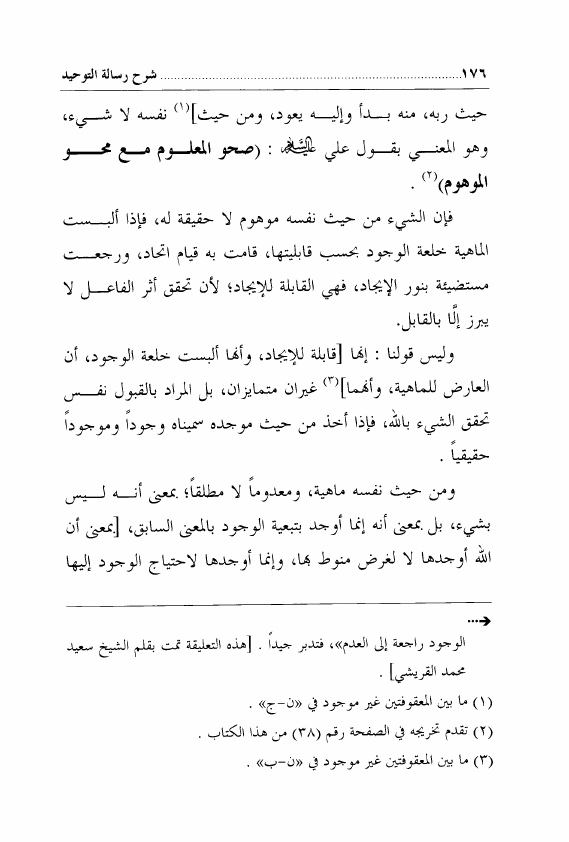 ١٧٦ ........................................................ شرح رسالة التوحيد
حيث ربه، منه بـدأ وإليـه يعود، ومن حيث](١) نفسه لا شـيء،
وهو المعنـي بقـول علي عليه السلام : (صحو المعلـوم مـع محـو
الموهوم)(٢) .
فإن الشيء من حيث نفسه موهوم لا حقيقة له، فإذا ألبـست
الماهية خلعة الوجود بحسب قابليتها، قامت به قيام اتحاد، ورجعـت
مستضيئة بنور الإيجاد، فهي القابلة للإيجاد؛ لأن تحقق أثر الفاعـل لا
يبرز إلَّا بالقابل.
وليس قولنا : إنها [قابلة للإيجاد، وأنها ألبست خلعة الوجود، أن
العارض للماهية، وأنهما](٣) غيران متمايزان، بل المراد بالقبول نفـس
تحقق الشيء بالله، فإذا أخذ من حيث موجده سميناه وجوداً وموجوداً
حقيقياً .
ومن حيث نفسه ماهية، ومعدوماً لا مطلقاً؛ بمعنى أنـه لـيس
بشيء، بل بمعنى أنه إنما أوجد بتبعية الوجود بالمعنى السابق، [بمعنى أن
الله أوجدها لا لغرض منوط بها، وإنما أوجدها لاحتياج الوجود إليها
...→
الوجود راجعة إلى العدم»، فتدبر جيداً . [هذه التعليقة تمت بقلم الشيخ سعيد
محمد القريشي] .
(١) ما بين المعقوفتين غير موجود في «ن–ج» .
(٢) تقدم تخريجه في الصفحة رقم (٣٨) من هذا الكتاب .
(٣) ما بين المعقوفتين غير موجود في «ن–ب» .